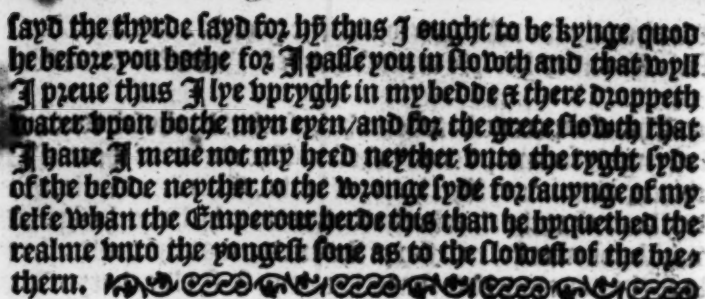 sayd the thyrde sayd for hȳ thus I ought to be kynge quod
he before you bothe for I passe you in slowth and that wyll
I preue thus I lye vpryght in my bedde & there droppeth
water vpon bothe myn eyen/and for the grete slowth that
I haue I meue not my heed neyther vnto the ryght syde
of the bedde neyther to the wronge syde for sauynge of my
selfe whan the Emperour herde this than he byquethed the
realme vnto the yongest sone as to the slowest of the bre⸗
thern.